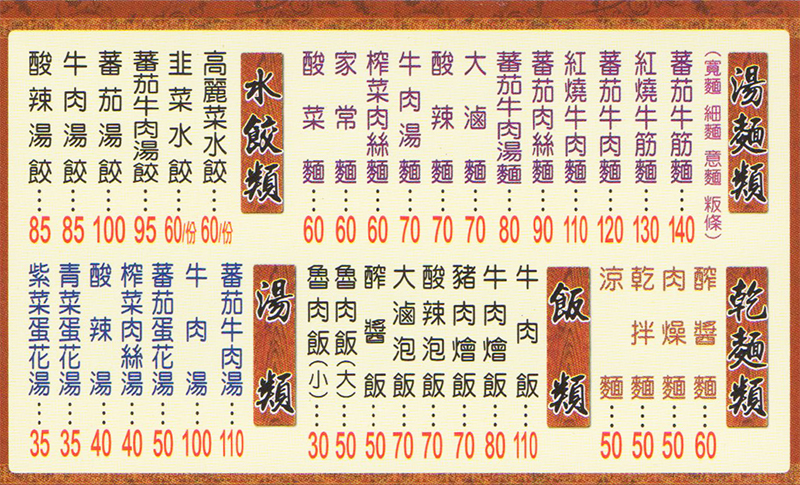 湯麵類
(寬麵 細麵 意麵 粄條)
蕃茄牛筋麵⋯140
紅燒牛筋麵⋯130
蕃茄牛肉麵⋯120
紅燒牛肉麵⋯110
蕃茄肉絲麵⋯90
蕃茄牛肉湯麵⋯80
大滷麵⋯70
酸辣麵⋯70
牛肉湯麵⋯70
榨菜肉絲麵⋯60
家常麵⋯60
酸菜麵⋯60
水餃類
高麗菜水餃⋯60/份
韭菜水餃⋯60/份
蕃茄牛肉湯餃⋯95
蕃茄湯餃⋯100
牛肉湯餃⋯85
酸辣湯餃⋯85
乾麵類
醡醬麵⋯60
肉燥麵⋯50
乾拌麵⋯50
涼麵⋯50
飯類
牛肉飯⋯110
牛肉燴飯⋯80
豬肉燴飯⋯70
酸辣泡飯⋯70
大滷泡飯⋯70
醡醬飯⋯50
魯肉飯(大)⋯50
魯肉飯(小)⋯30
湯類
蕃茄牛肉湯⋯110
牛肉湯⋯100
蕃茄蛋花湯⋯50
榨菜肉絲湯⋯40
酸辣湯⋯40
青菜蛋花湯⋯35
紫菜蛋花湯⋯35